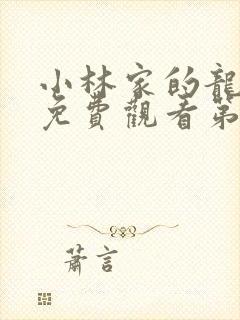 小林家的龍
免費觀看第
蕭言